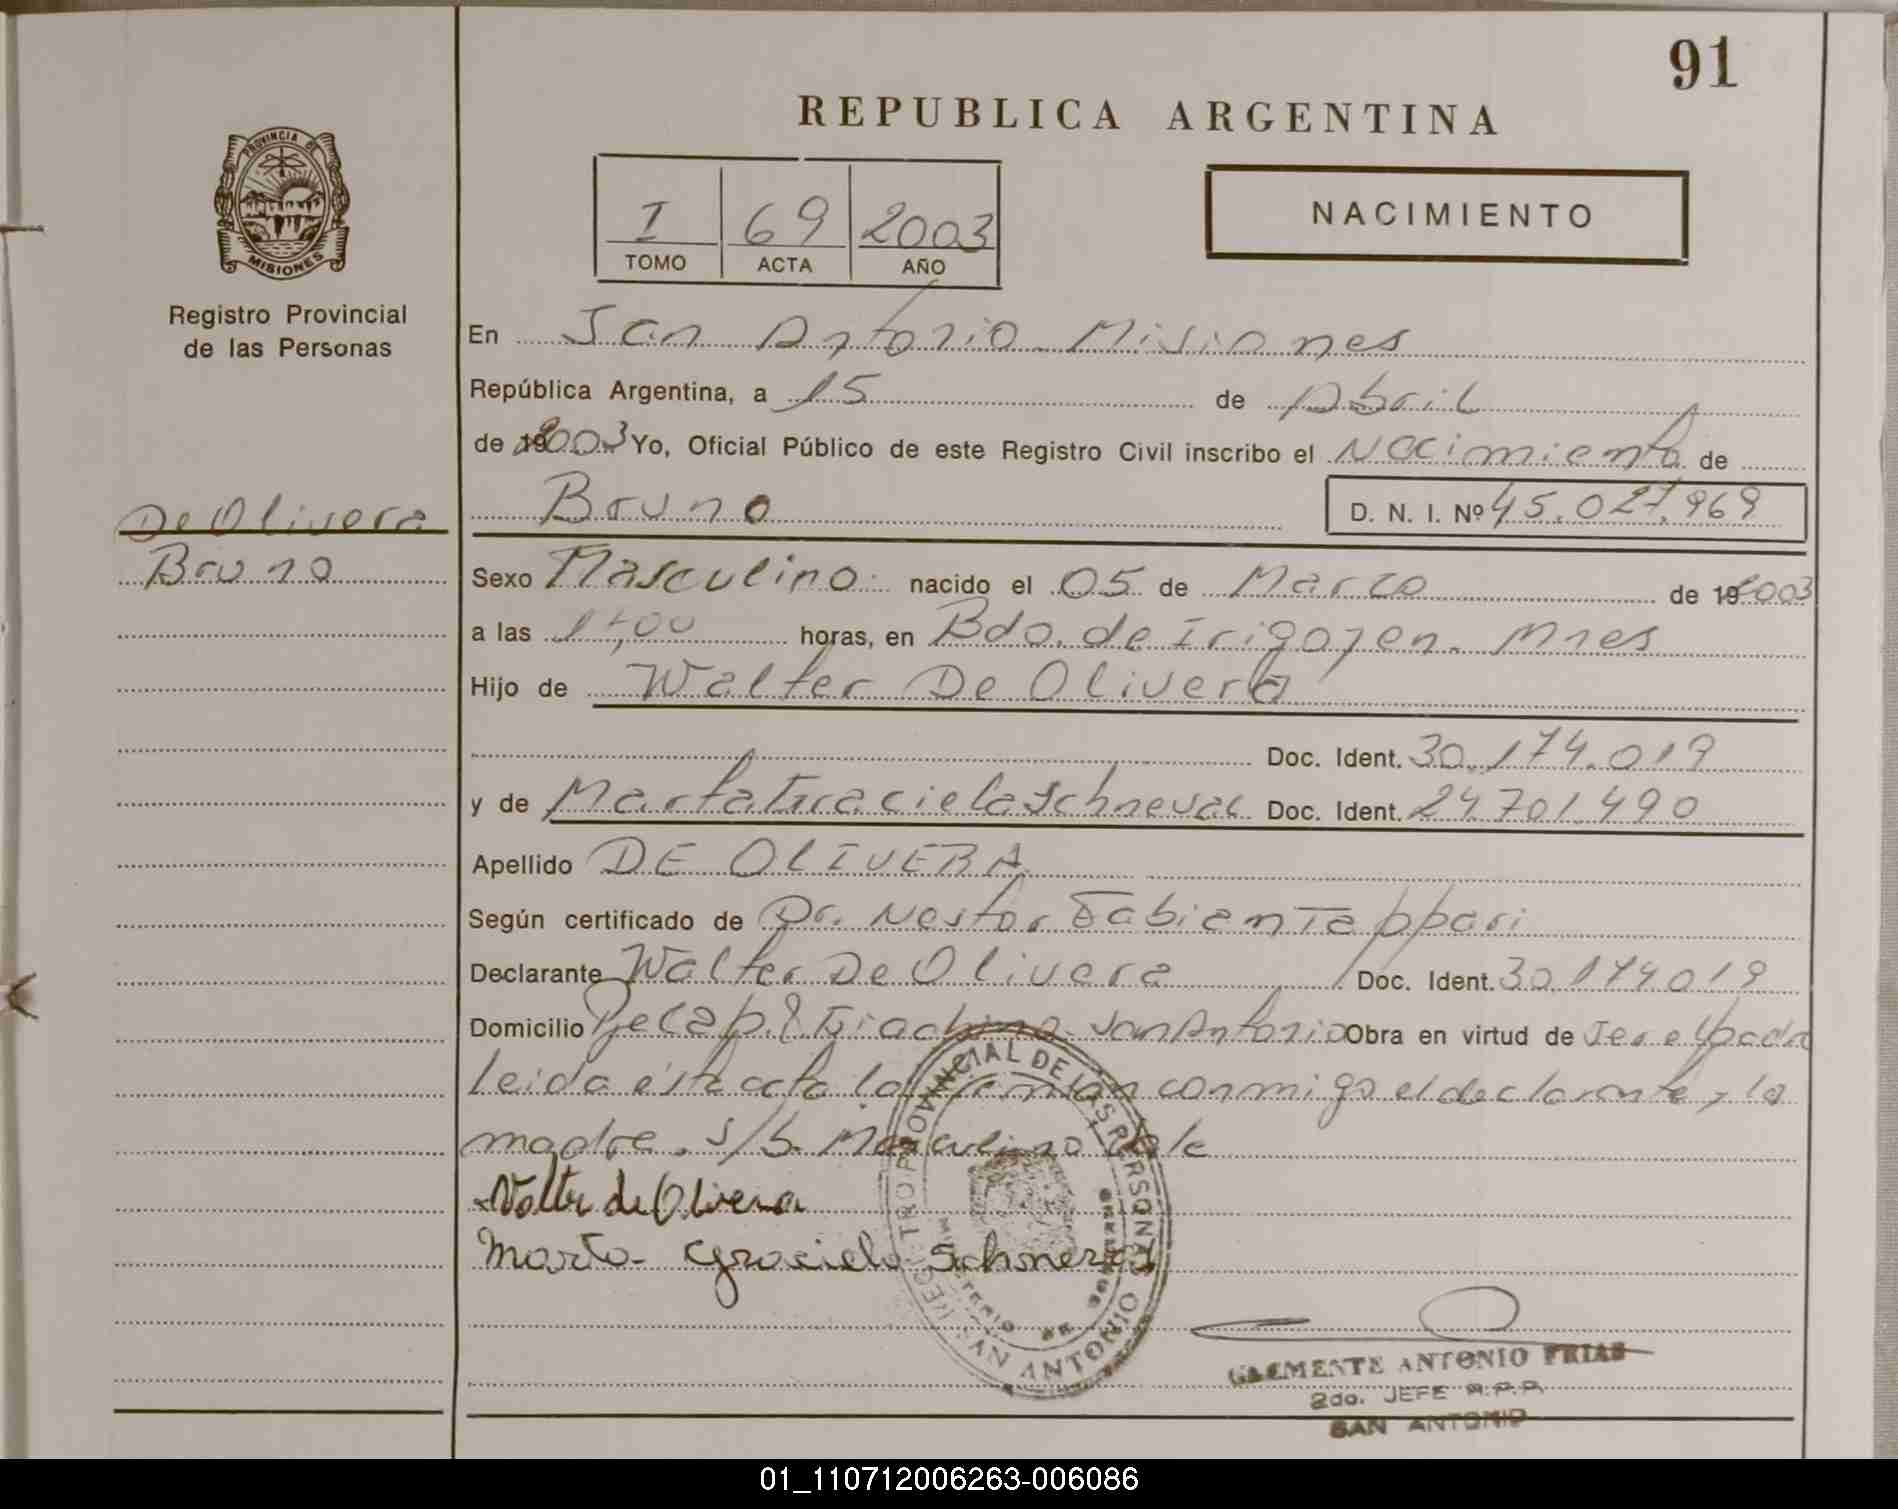 91
REPUBLICA ARGENTINA
PROVINCIA DE
MISIONES
Registro Provincial
de las Personas
I 69 2003
TOMO ACTA AÑO
NACIMIENTO
En San Antonio Misiones
República Argentina, a 15 de Abril
de 2003 Yo, Oficial Público de este Registro Civil inscribo el Nacimiento de
De Olivera
Bruno
Bruno D. N. I. Nº 45.027.969
Sexo Masculino nacido el 05 de Marzo de 192003
a las horas, en Bdo. de Irigoyen. Mnes
Hijo de Walter De Olivera
Doc. Ident. 30.174.019
y de Marta Graciela Doc. Ident. 24.701.490
Apellido DE OLIVERA
Según certificado de Dr. Nestor Fabian Tappari
Declarante Walter De Olivera Doc. Ident. 30.174019
Domicilio San Antonio Obra en virtud de Ser el padre
Leida esta acta la firman conmigo el declarante y la
madre. S/b. Masculino Vale
Walter de Olivera
Marta Graciela
REGISTRO PROVINCIAL DE LAS PERSONAS
SAN ANTONIO
CLEMENTE ANTONIO FRIAS
2do. JEFE R.P.P.
SAN ANTONIO
01_110712006263-006086